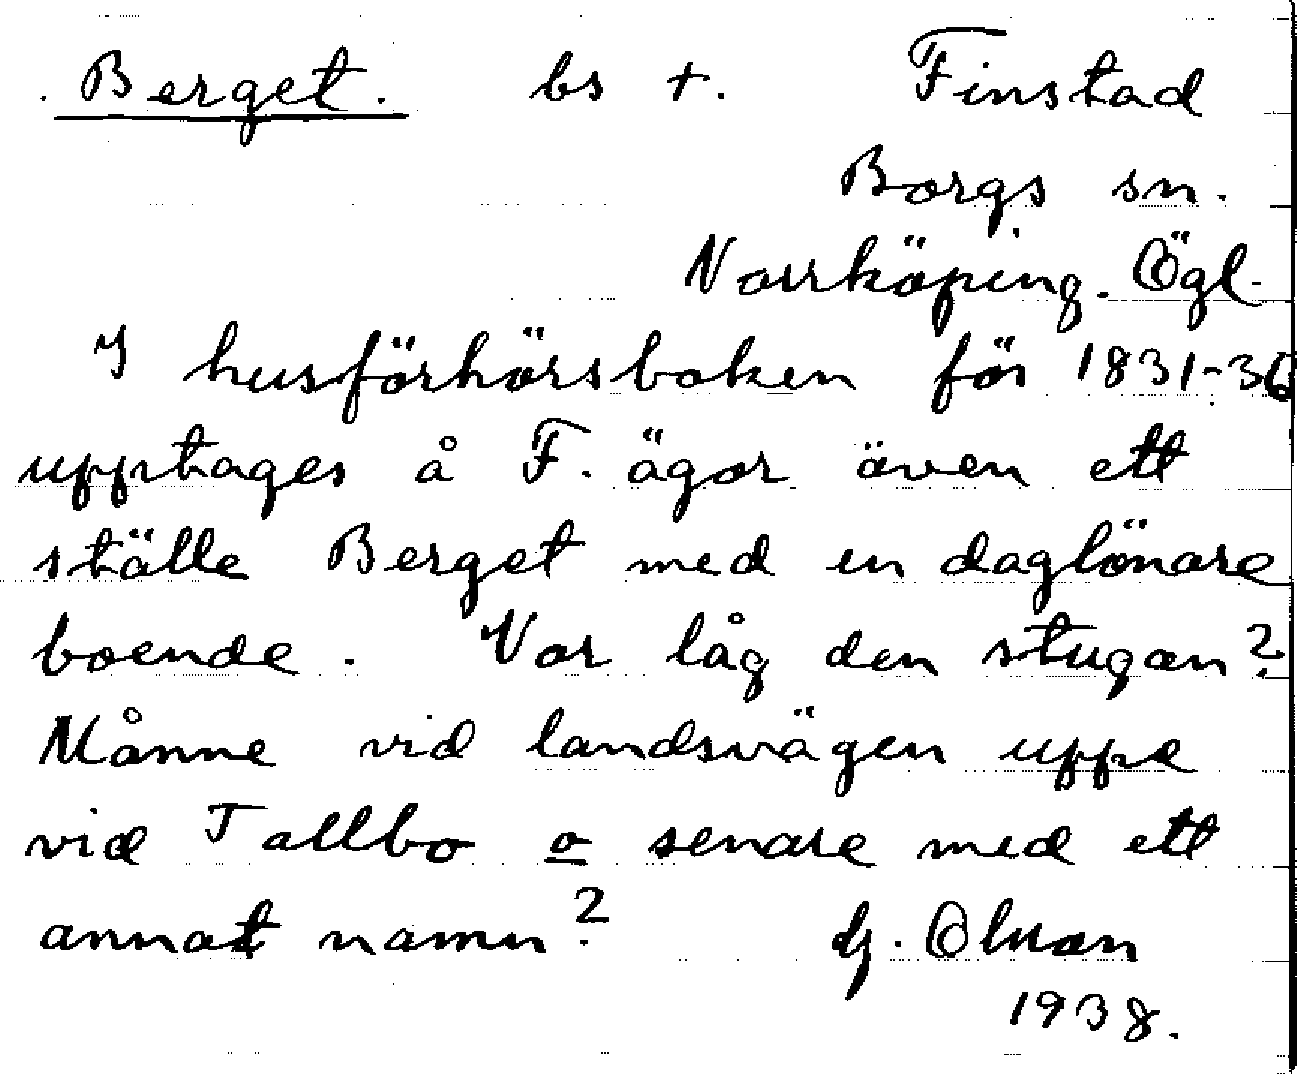 Berget. bs +. Finstad
Borgs sn.
Norrköping. Ögl.
I husförhörsboken för 1831-36
upptages å F. ägor även ett
ställe Berget med en daglönare
boende. Var låg den stugan?
Månne vid landsvägen uppe
vid Tallbo o senare med ett
annat namn? Hj. Olsson
1938.